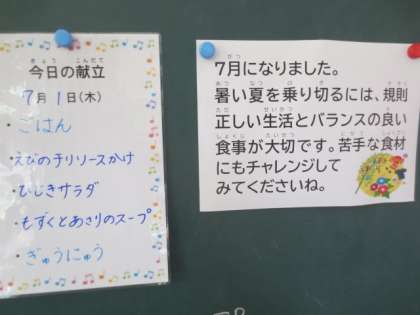 今日の献立
7月1日(木)
・ごはん
・えびのチリソースかけ
・ひじきサラダ
・もずくとあさりのスープ
・ぎゅうにゅう
7月になりました。
暑い夏を乗り切るには、規則
正しい生活とバランスの良い
食事が大切です。苦手な食材
にもチャレンジして
みてくださいね。